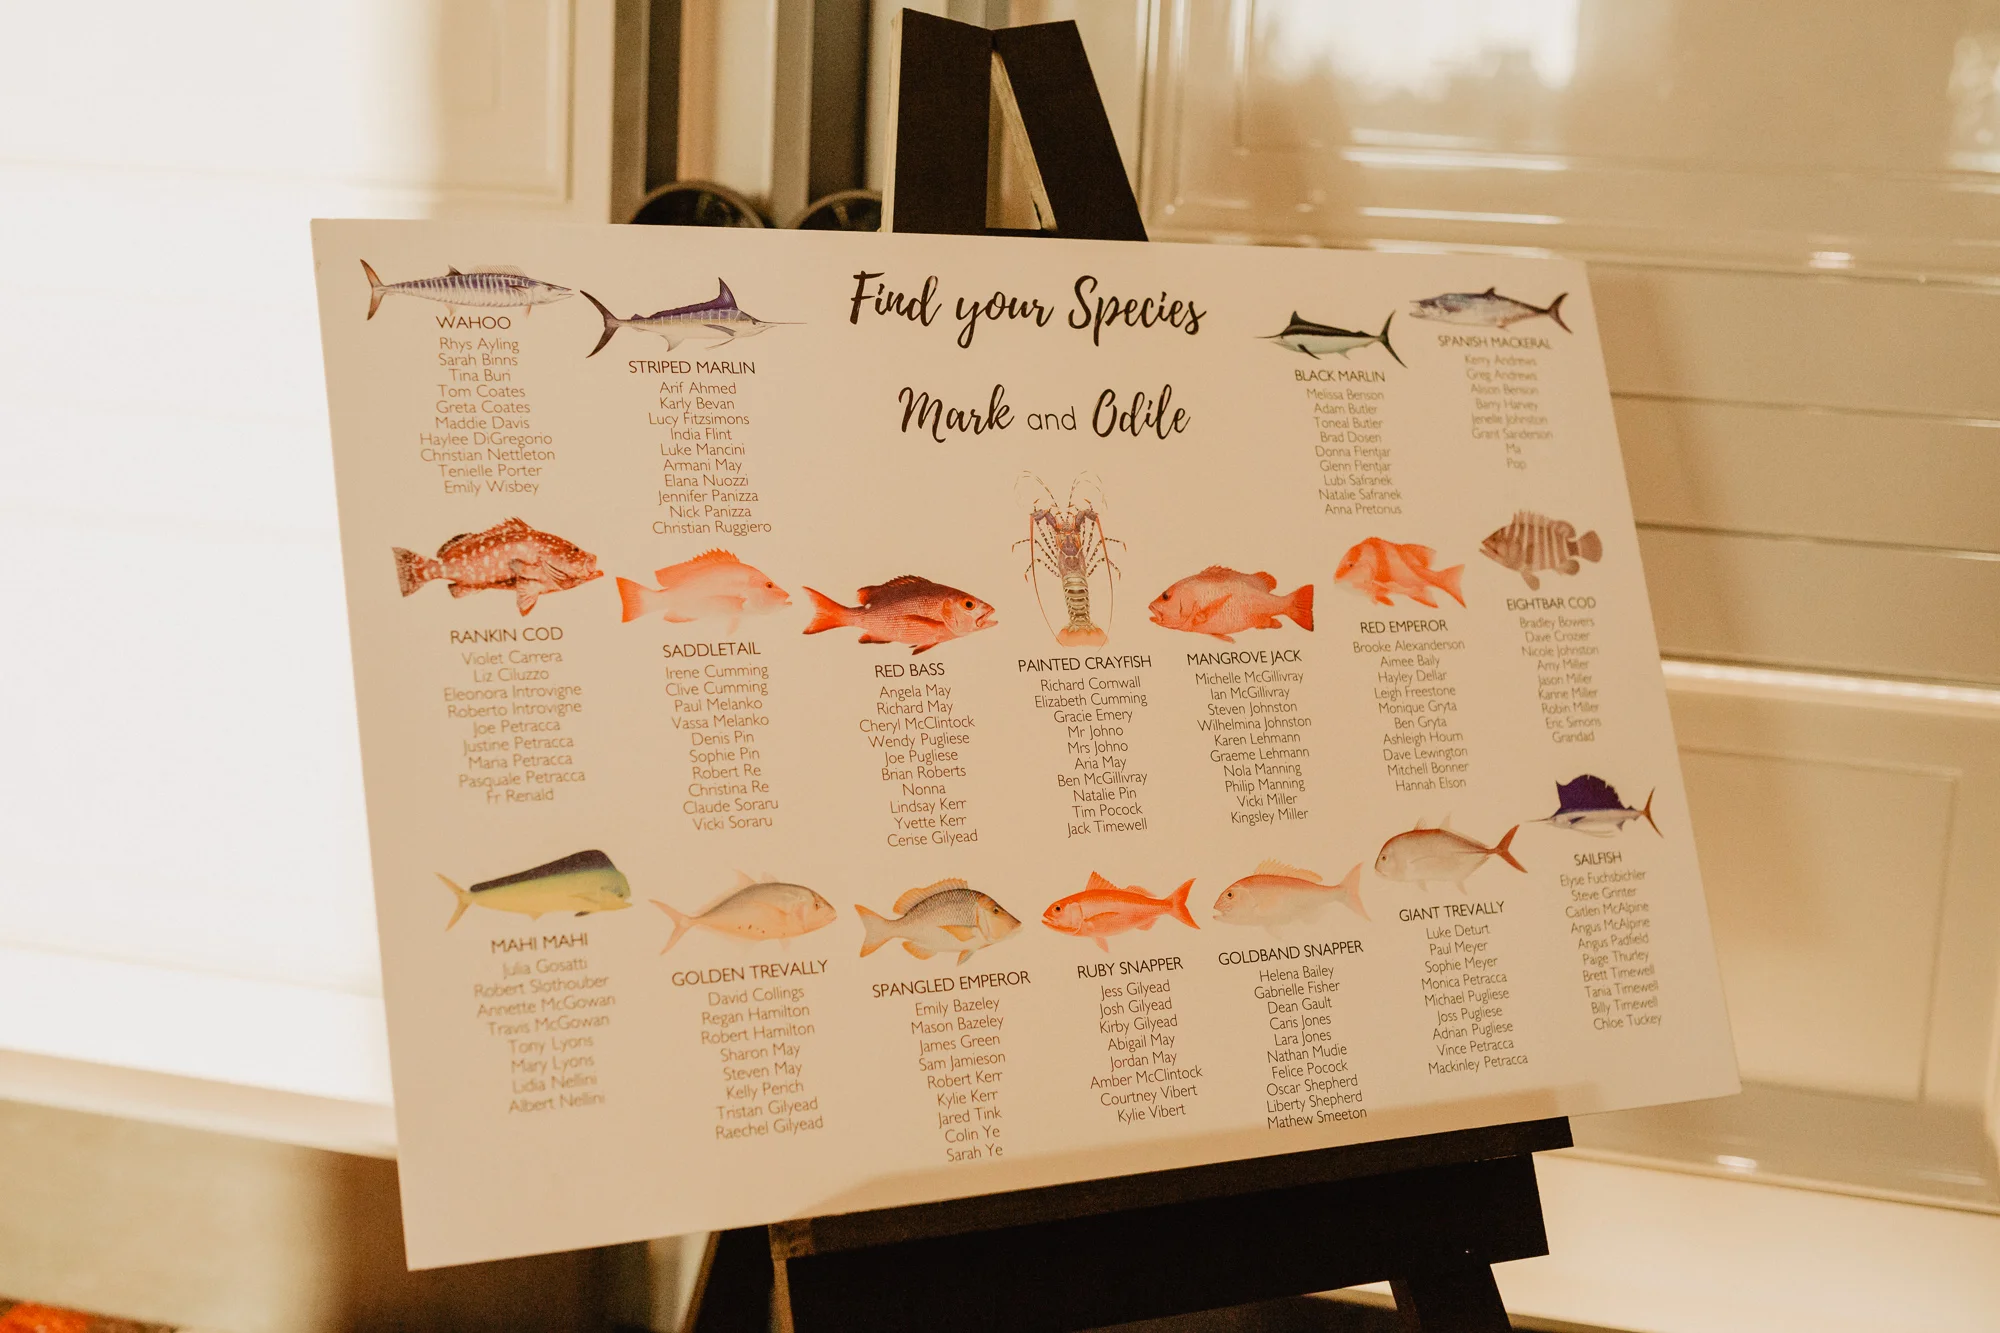 Find your Species
Mark and Odile
WAHOO
Rhys Ayling
Sarah Binns
Tina Bun
Tom Coates
Greta Coates
Maddie Davis
Haylee DiGregorio
Christian Nettleton
Tenielle Porter
Emily Wisbey
STRIPED MARLIN
Arif Ahmed
Karly Bevan
Lucy Fitzsimons
India Flint
Luke Mancini
Armani May
Elana Nuozzi
Jennifer Panizza
Nick Panizza
Christian Ruggiero
BLACK MARLIN
Melissa Benson
Adam Butler
Toneal Butler
Brad Dosen
Donna Flentjar
Glenn Flentjar
Lubi Safranek
Natalie Safranek
Anna Pretorius
SPANISH MACKERAL
Kerry Andrews
Greg Andrews
Alison Benson
Barry Harvey
Jenelle Johnston
Grant Sanderson
Ma
Pop
RANKIN COD
Violet Carrera
Liz Ciluzzo
Eleonora Introvigne
Roberto Introvigne
Joe Petracca
Justine Petracca
Maria Petracca
Pasquale Petracca
Fr Renald
SADDLETAIL
Irene Cumming
Clive Cumming
Paul Melanko
Vassa Melanko
Denis Pin
Sophie Pin
Robert Re
Christina Re
Claude Soraru
Vicki Soraru
RED BASS
Angela May
Richard May
Cheryl McClintock
Wendy Pugliese
Joe Pugliese
Brian Roberts
Nonna
Lindsay Kerr
Yvette Kerr
Cerise Gilyead
PAINTED CRAYFISH
Richard Cornwall
Elizabeth Cumming
Gracie Emery
Mr Johno
Mrs Johno
Aria May
Ben McGillivray
Natalie Pin
Tim Pocock
Jack Timewell
MANGROVE JACK
Michelle McGillivray
Ian McGillivray
Steven Johnston
Wilhelmina Johnston
Karen Lehmann
Graeme Lehmann
Nola Manning
Philip Manning
Vicki Miller
Kingsley Miller
RED EMPEROR
Brooke Alexanderson
Aimee Baily
Hayley Dellar
Leigh Freestone
Monique Gryta
Ben Gryta
Ashleigh Hourn
Dave Lewington
Mitchell Bonner
Hannah Elson
EIGHTBAR COD
Bradley Bowers
Dave Crozier
Nicole Johnston
Amy Miller
Jason Miller
Karine Miller
Robin Miller
Eric Simons
Grandad
MAHI MAHI
Julia Gosatti
Robert Slothouber
Annette McGowan
Travis McGowan
Tony Lyons
Mary Lyons
Lidia Nellini
Albert Nellini
GOLDEN TREVALLY
David Collings
Regan Hamilton
Robert Hamilton
Sharon May
Steven May
Kelly Perich
Tristan Gilyead
Raechel Gilyead
SPANGLED EMPEROR
Emily Bazeley
Mason Bazeley
James Green
Sam Jamieson
Robert Kerr
Kylie Kerr
Jared Tink
Colin Ye
Sarah Ye
RUBY SNAPPER
Jess Gilyead
Josh Gilyead
Kirby Gilyead
Abigail May
Jordan May
Amber McClintock
Courtney Vibert
Kylie Vibert
GOLDBAND SNAPPER
Helena Bailey
Gabrielle Fisher
Dean Gault
Caris Jones
Lara Jones
Nathan Mudie
Felice Pocock
Oscar Shepherd
Liberty Shepherd
Mathew Smeeton
GIANT TREVALLY
Luke Deturt
Paul Meyer
Sophie Meyer
Monica Petracca
Michael Pugliese
Joss Pugliese
Adrian Pugliese
Vince Petracca
Mackinley Petracca
SAILFISH
Elyse Fuchsbichler
Steve Grinter
Caitlen McAlpine
Angus McAlpine
Angus Padfield
Paige Thurley
Brett Timewell
Tania Timewell
Billy Timewell
Chloe Tuckey